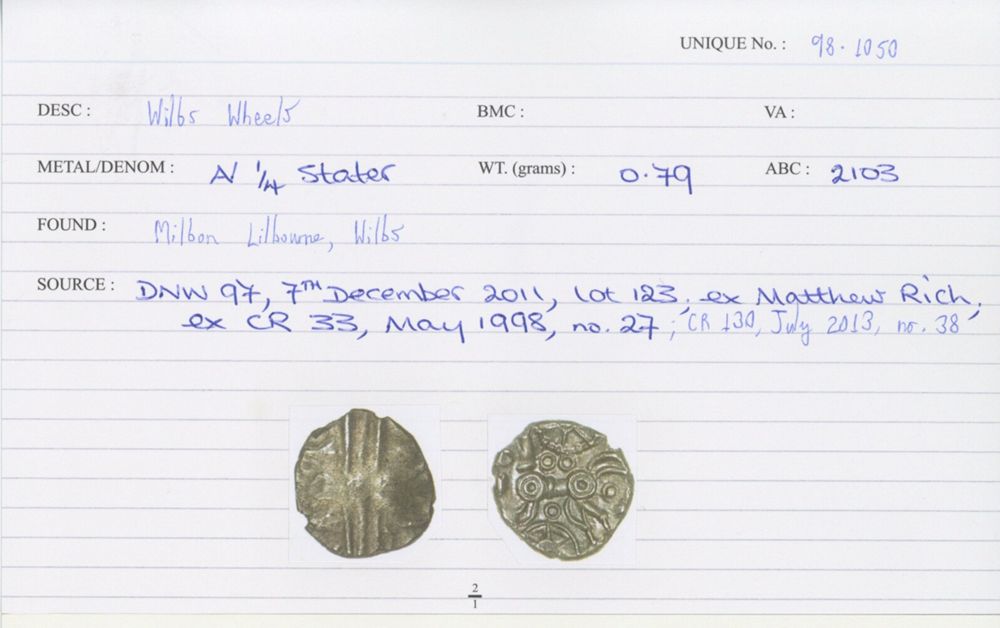 UNIQUE No. : 98.1050
DESC : Wilts Wheels BMC : VA :
METAL/DENOM : AV 1/4 Stater WT. (grams) : 0.79 ABC : 2103
FOUND : Milton Lilbourne, Wilts
SOURCE : DNW 97, 7TH December 2011, lot 123, ex Matthew Rich,
ex CR 33, May 1998, no. 27; CR 130, July 2013, no. 38
2
1